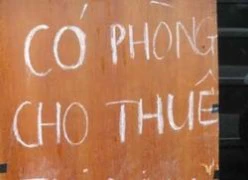 CÓ PHÒNG
CHO THUÊ